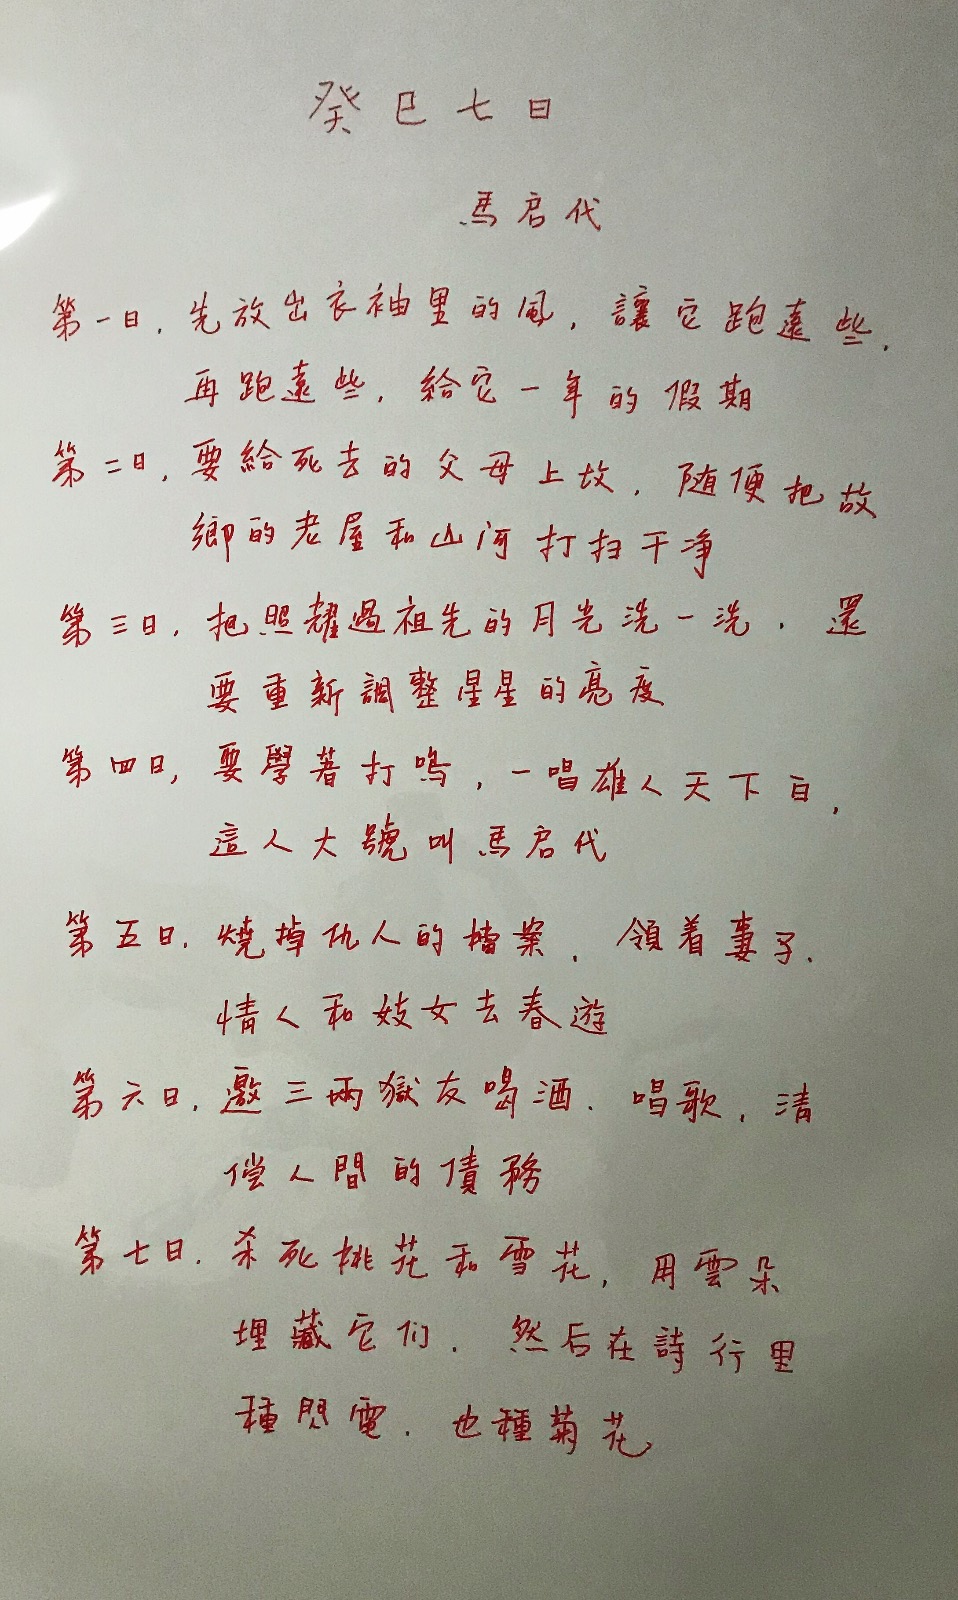 癸巳七日
馬启代
第一日，先放出衣袖里的風，讓它跑遠些，
再跑遠些，給它一年的假期
第二日，要給死去的父母上坟，随便把故
鄉的老屋和山河打扫干净
第三日，把照耀過祖先的月光洗一洗，還
要重新調整星星的亮度
第四日，要學著打鳴，一唱雄人天下白，
這人大號叫馬启代
第五日，燒掉仇人的檔案，領着妻子、
情人和妓女去春遊
第六日，邀三兩獄友喝酒、唱歌，清
偿人間的債務
第七日，杀死桃花和雪花，用雲朵
埋藏它们，然后在詩行里
種閃電，也種菊花